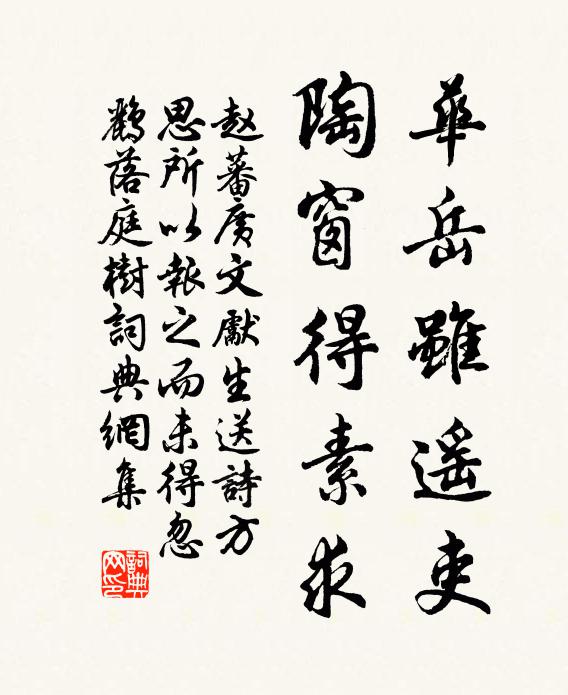 華岳雖遥吏
陶窗得素求
赵蕃廣文獻生送詩方
思所以報之而未得忽
落庭樹詞典網集
詞典
网印